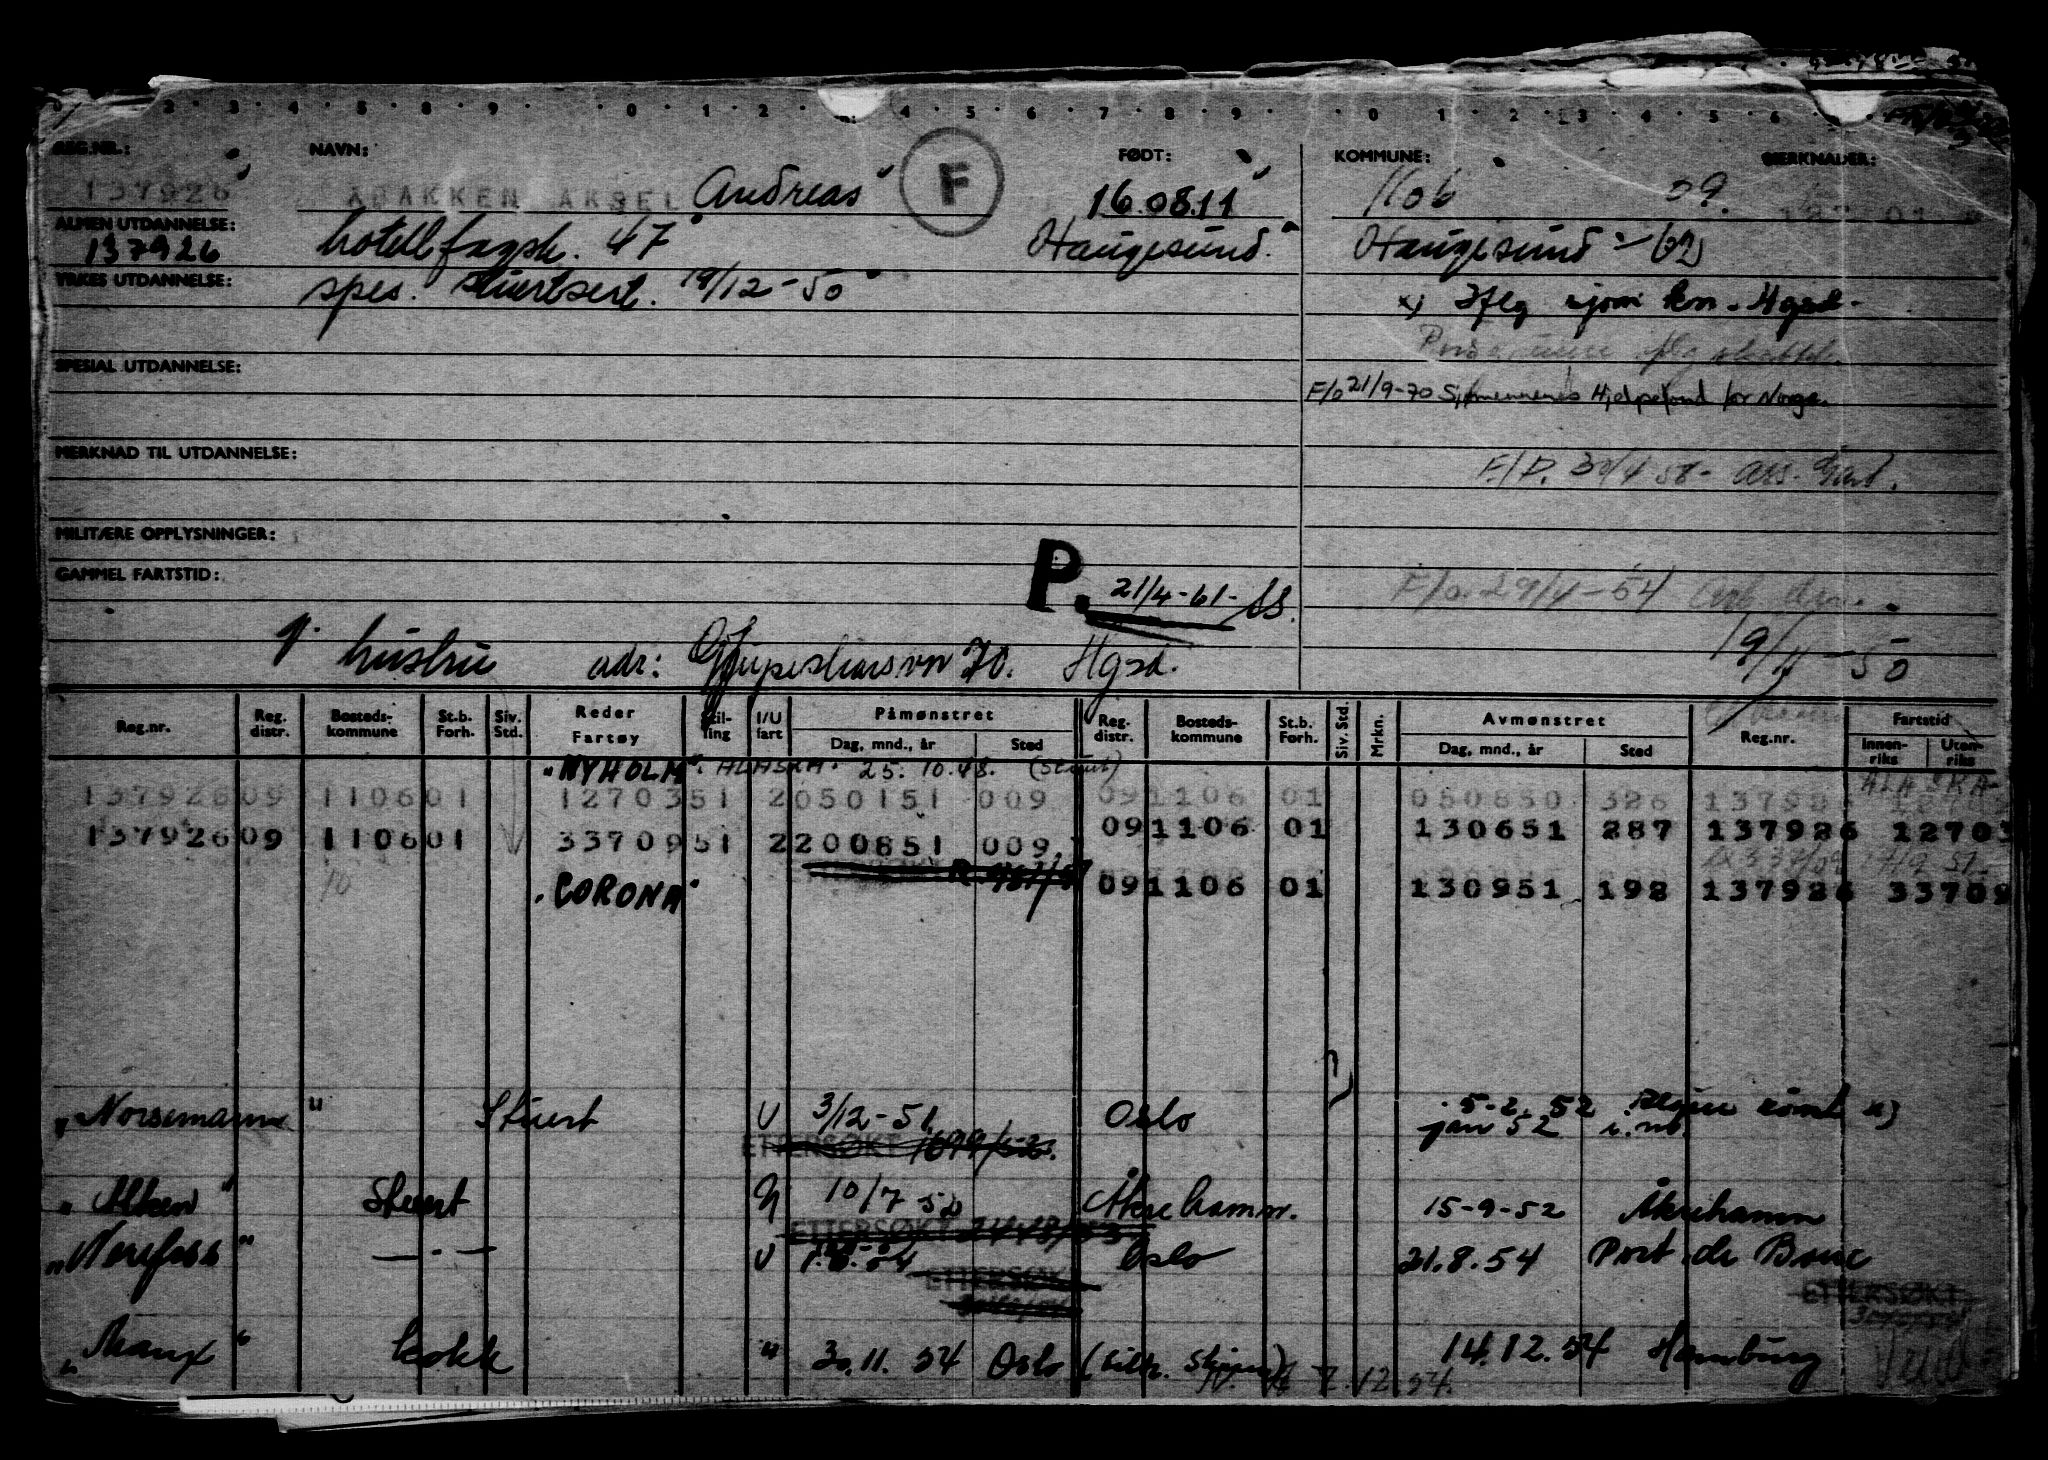 REG.NR.: NAVN: FØDT: KOMMUNE: MERKNADER:
137926 ABAKKEN AKSEL Andreas F 16.08.11 1106 09.
ALMEN UTDANNELSE:
137926 hotellfagsk. 47 Haugesund. Haugesund
YRKES UTDANNELSE:
spes. stuertsert. 18/12-50
x) Iflg sjøm kon. Hgsd.
SPESIAL UTDANNELSE:
F/o 21/9-70 Sjømennenes Hjelpefond for Norge.
MERKNAD TIL UTDANNELSE:
F/D. 30/4 58-
MILITÆRE OPPLYSNINGER:
GAMMEL FARTSTID:
P. 21/4-61- SS.
F/o. 29/4-54
hustru adr: 70. Hgsd.
19/11-50
Reg.nr. Reg. distr. Bosteds-kommune St.b. Forh. Siv. Std. Reder Fartøy Stil-ling I/U fart Påmønstret Dag, mnd., år Sted Reg. distr. Bosteds-kommune St.b. Forh. Siv. Std. Mrkn. Avmønstret Dag, mnd., år Sted Reg.nr. Fartstid Innen-riks Uten-riks
"NYHOLM" "ALASKA" 25.10.48. (Stuert) ALASKA
137926 09 1106 01 12703 51 2 050151 009 09 1106 01 050850 326 137926 12703
09 1106 01 130651 287 137926 12703
137926 09 1106 01 33709 51 2 200851 009
"CORONA" 09 1106 01 130951 198 137926 33709
"Norsemann" Stuert U 3/12-51. Oslo 5-2.52
jan 52
ETTERSØKT
"Alken" Stuert 10/7 52 Åkrehamn. 15-9-52 Åkrehamn
ETTERSØKT
"Norefoss" — " — U Oslo 21.8.54 Port de Bouc
ETTERSØKT
ETTERSØKT
kokk " 30.11.54 Oslo 14.12.54 Hamburg
7.12.54.